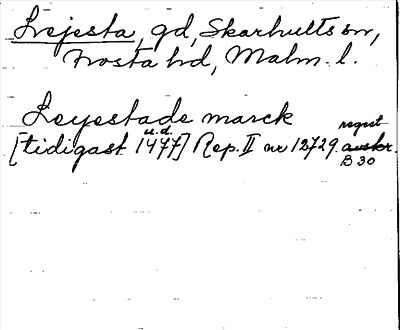 Lejesta, gd, Skarhults sn,
Frosta hd, Malm. l.
Leyestade marck
u.d. regest
[tidigast 1477] Rep. II nr 12729. avskr.
B 30